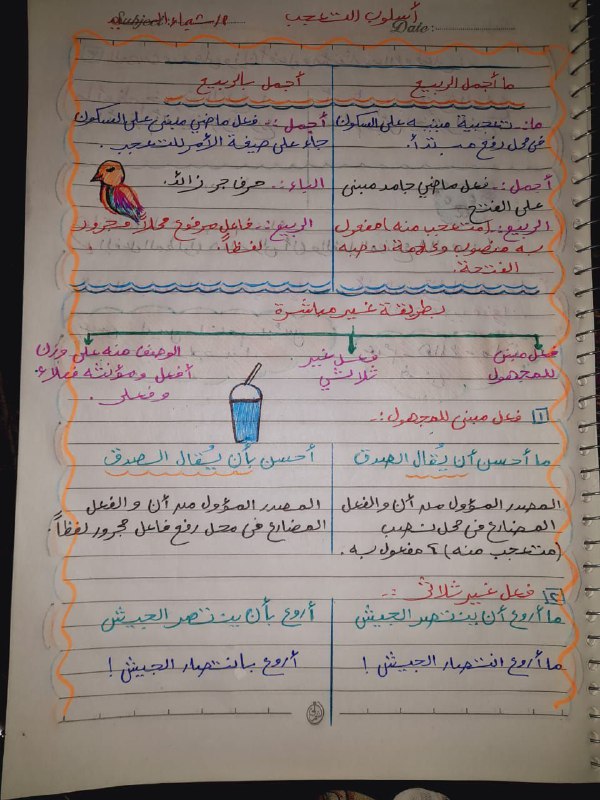 أسلوب التعجب
Subject:
Date:
أ/ شيماء السيد
ما أجمل الربيع
أجمل بالربيع
ما:- تعجبية مبنية على السكون
فى محل رفع مبتدأ.
أجمل:- فعل ماضي جامد مبنى
على الفتح
الربيع:- (متعجب منه) مفعول
به منصوب وعلامة نصبه
الفتحة.
أجمل:- فعل ماضي مبنى على السكون
جاء على صيغة الأمر للتعجب.
الباء:- حرف جر زائد.
الربيع:- فاعل مرفوع محلاً ومجرور
لفظاً
بطريقة غير مباشرة
فعل مبنى
للمجهول
فعل غير
ثلاثي
الوصف منه على وزن
أفعل ومؤنثه فعلاء
وفعلى.
١ فعل مبنى للمجهول:-
ما أحسن أن يُقال الصدق
أحسن بأن يُقال الصدق
المصدر المؤول من أن والفعل
المضارع فى محل نصب
(متعجب منه) مفعول به.
المصدر المؤول من أن والفعل
المضارع فى محل رفع فاعل مجرور لفظاً.
٢ فعل غير ثلاثى :-
ما أروع أن ينتصر الجيش
أروع بأن ينتصر الجيش
ما أروع انتصار الجيش!
أروع بانتصار الجيش!